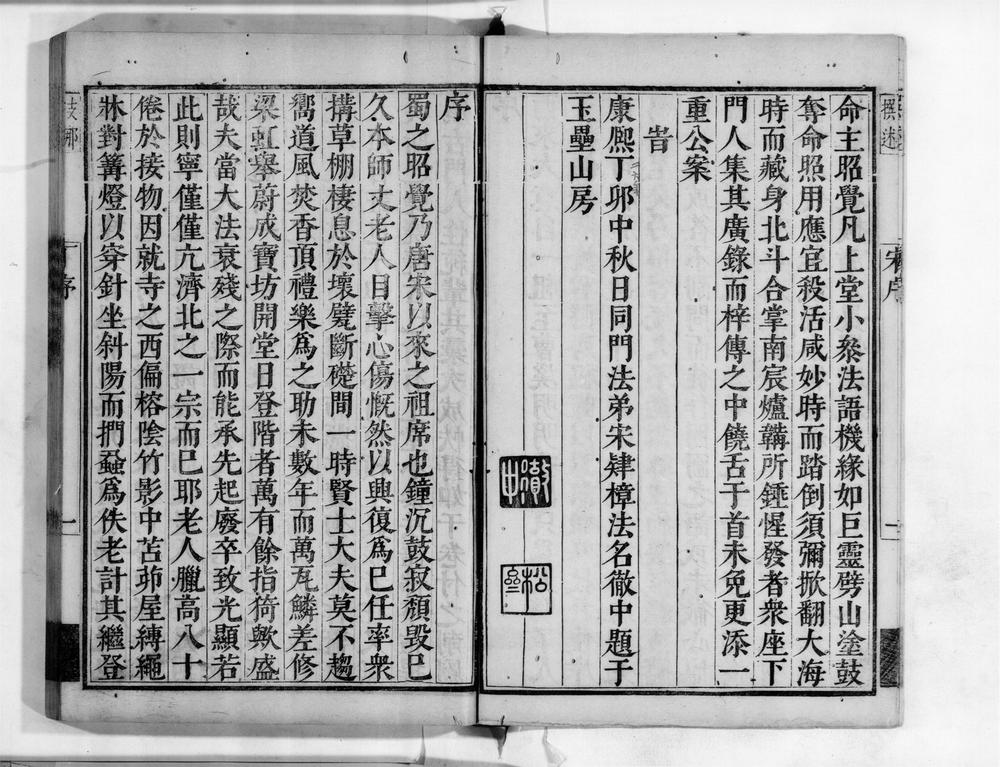 命主昭覺凡上堂小叅法語機緣如巨靈劈山塗鼓
奪命照用應宜殺活咸妙時而踏倒須彌掀翻大海
時而藏身北斗合掌南宸爐鞲所錘惺發者衆座下
門人集其廣錄而梓傳之中饒舌于首未免更添一
重公案
旹
康熈丁卯中秋日同門法弟宋肄樟法名徹中題于
玉壘山房
序
蜀之昭覺乃唐宋以來之祖席也鐘沉鼓寂頹毀已
久本師丈老人目擊心傷慨然以興復爲已任率衆
搆草棚棲息於壞甓斷礎間一時賢士大夫莫不趨
嚮道風焚香頂禮樂爲之助未數年而萬瓦鱗差修
梁虹舉蔚成寶坊開堂日登階者萬有餘指猗歟盛
哉夫當大法衰殘之際而能承先起廢卒致光顯若
此則寧僅僅亢濟北之一宗而已耶老人臘高八十
倦於接物因就寺之西偏榕陰竹影中苫茆屋縛繩
牀對篝燈以穿針坐斜陽而捫蝨爲佚老計其繼登